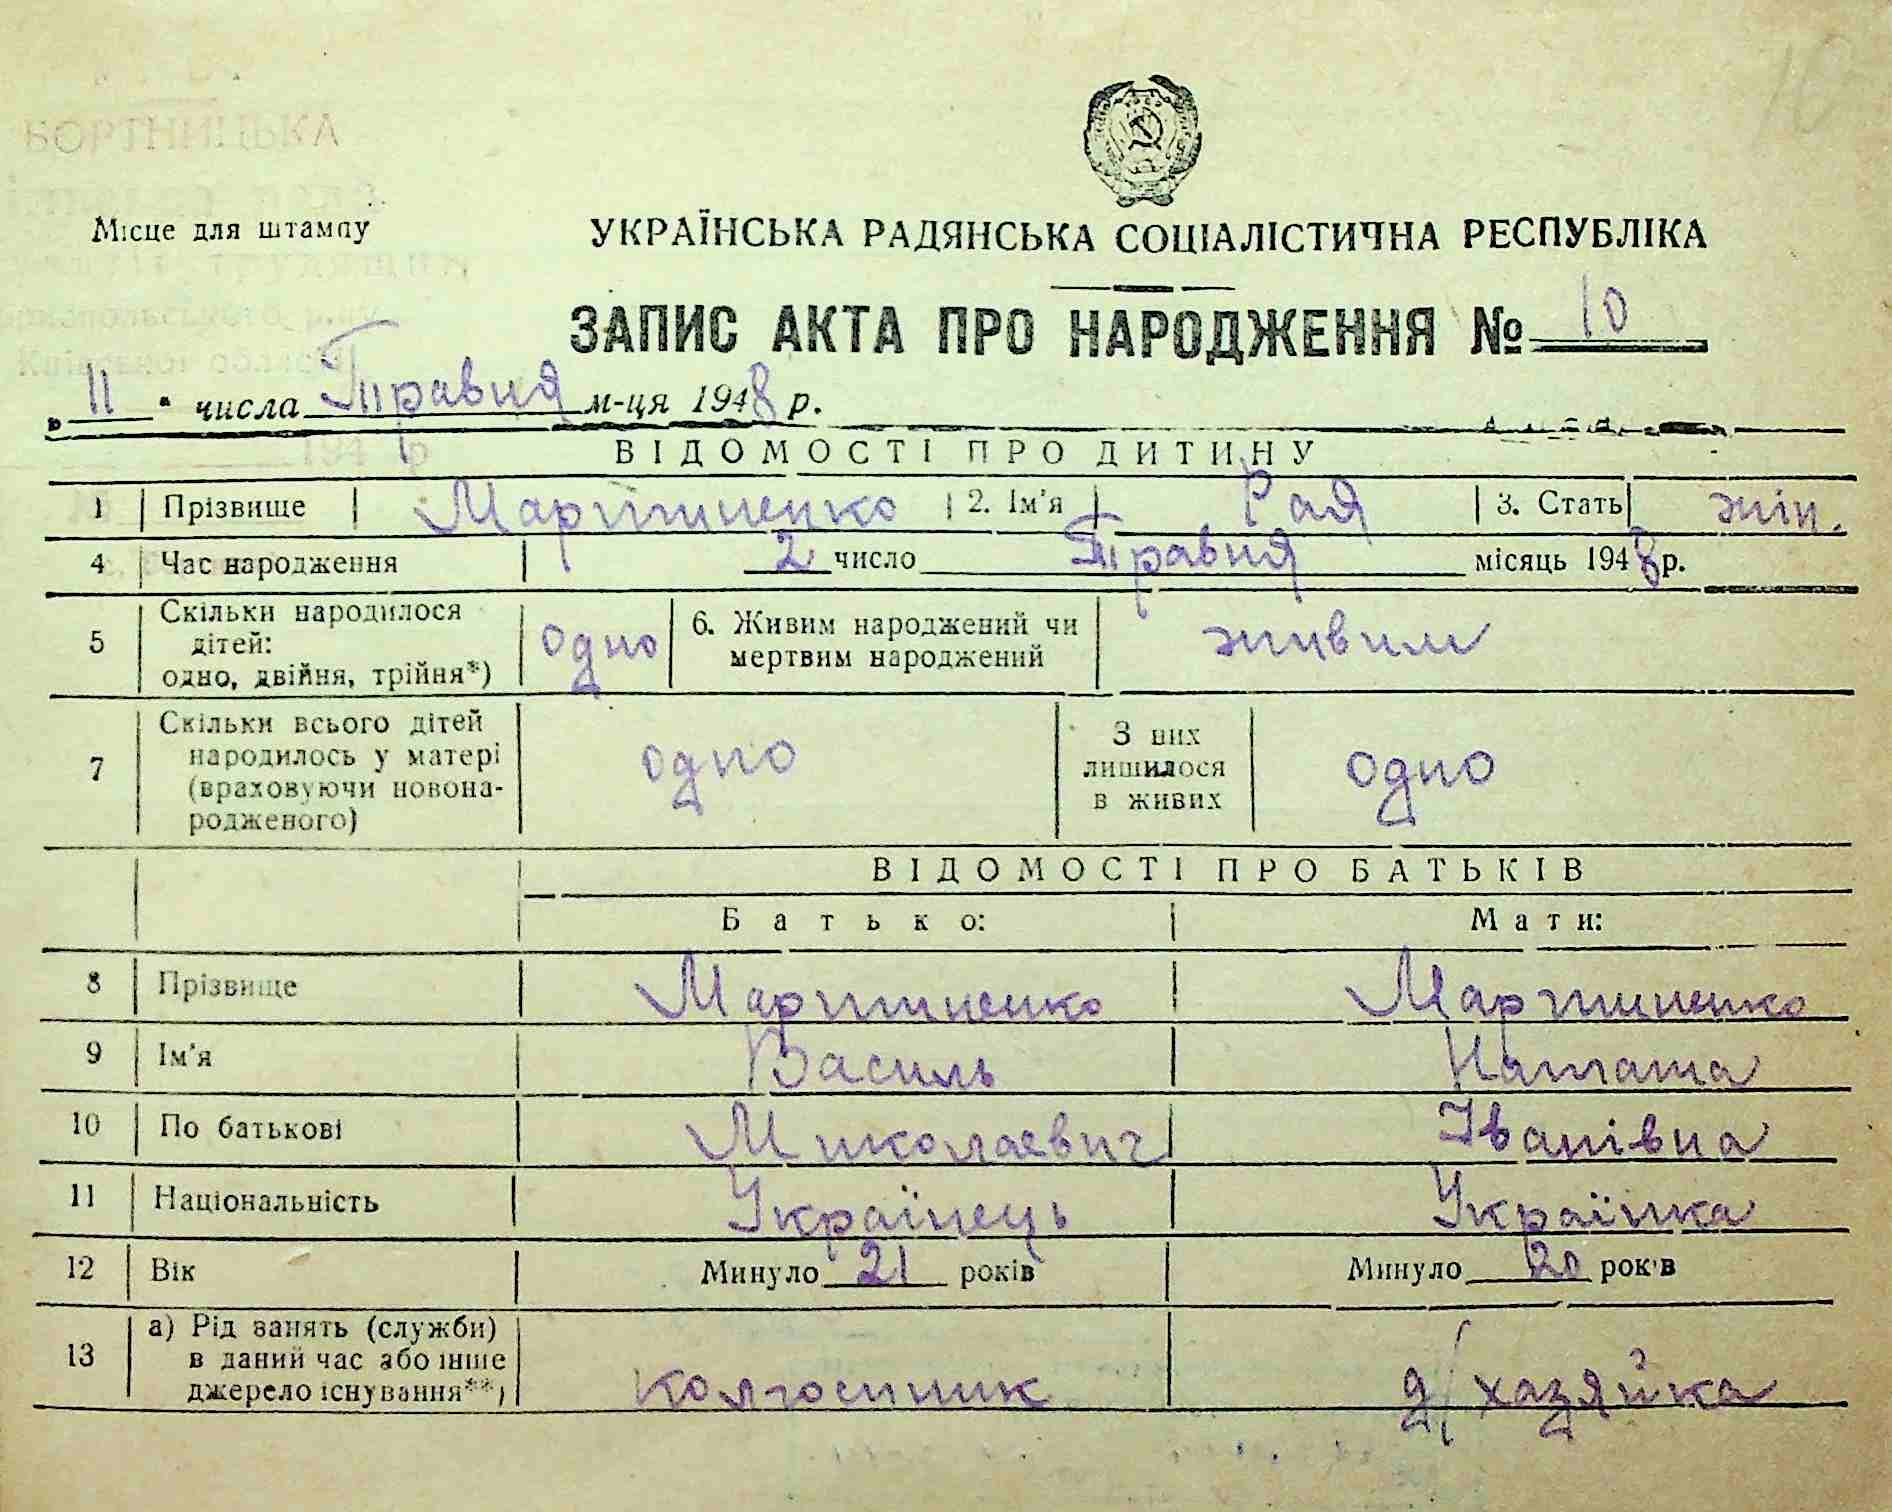 БОРТНИЦЬКА
Місце для штампу
УКРАЇНСЬКА РАДЯНСЬКА СОЦІАЛІСТИЧНА РЕСПУБЛІКА
трудящих
ЗАПИС АКТА ПРО НАРОДЖЕННЯ № 10
Київської області
„ 11 “ числа Травня м-ця 1948 р.
194 р
ВІДОМОСТІ ПРО ДИТИНУ
1 Прізвище Мартиненко 2. Ім'я Рая 3. Стать жін.
4 Час народження 2 число Травня місяць 1948 р.
5 Скільки народилося дітей: одно, двійня, трійня*) одно 6. Живим народжений чи мертвим народжений живим
7 Скільки всього дітей народилось у матері (враховуючи новона-родженого) одно З них лишилося в живих одно
ВІДОМОСТІ ПРО БАТЬКІВ
Батько: Мати:
8 Прізвище Мартиненко Мартиненко
9 Ім'я Василь Наташа
10 По батькові Миколаевич Іванівна
11 Національність Українець Українка
12 Вік Минуло 21 років Минуло 20 років
13 а) Рід занять (служби) в даний час або інше джерело існування**) колгоспник д/хазяйка